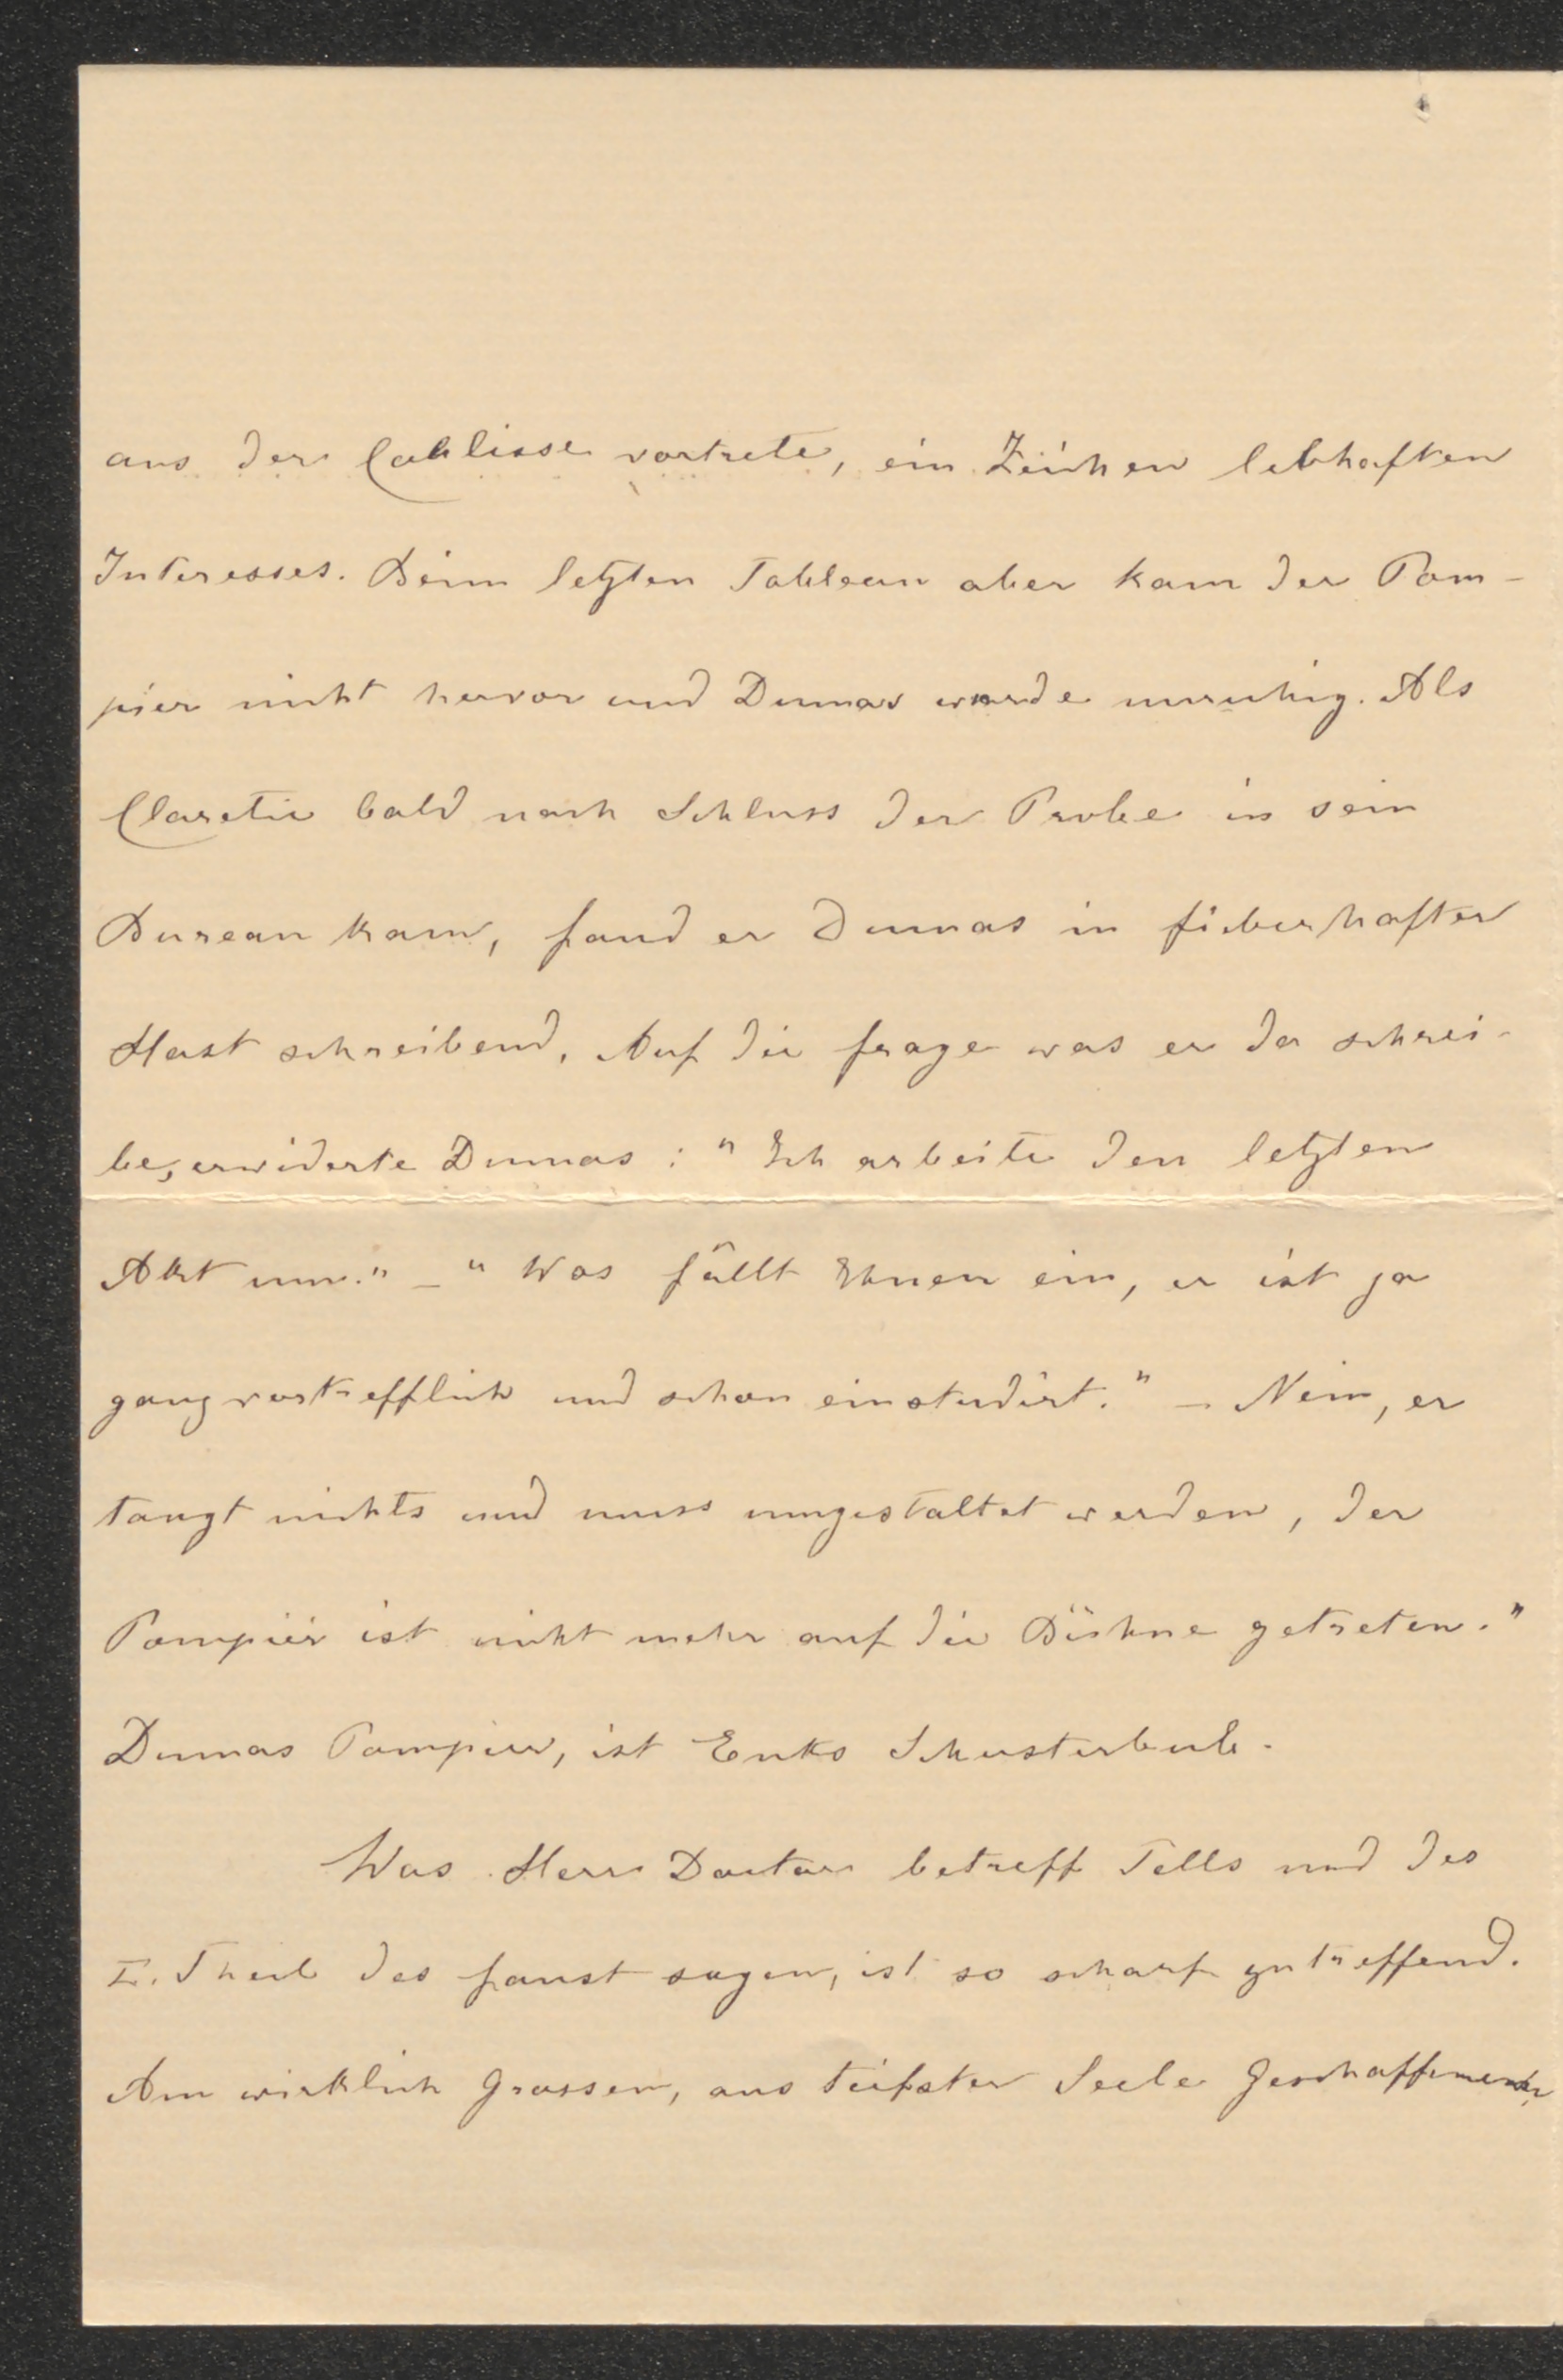 aus der Coulisse vortrete, ein Zeichen lebhaften
Interesses. Beim letzten Tableau aber kam der Pom-
pier nicht hervor und Dumas wurde unruhig. Als
Claretie bald nach Schluss der Probe in sein
Bureau kam, fand er Dumas in fieberhafter
Hast schreibend. Auf die Frage was er da schrei-
be, erwiderte Dumas: "Ich arbeite den letzten
Akt um." – "Was fällt Ihnen ein, er ist ja
ganz vortrefflich und schon einstudirt." – Nein, er
taugt nichts und muss umgestaltet werden, der
Pompier ist nicht mehr auf die Bühne getreten."
Dumas Pompier, ist Enks Schusterbub.
Was Herr Doctor betreff Tells und des
I. Theil des Faust sagen, ist so scharf zutreffend.
Am wirklich Grossen, aus tiefster Seele